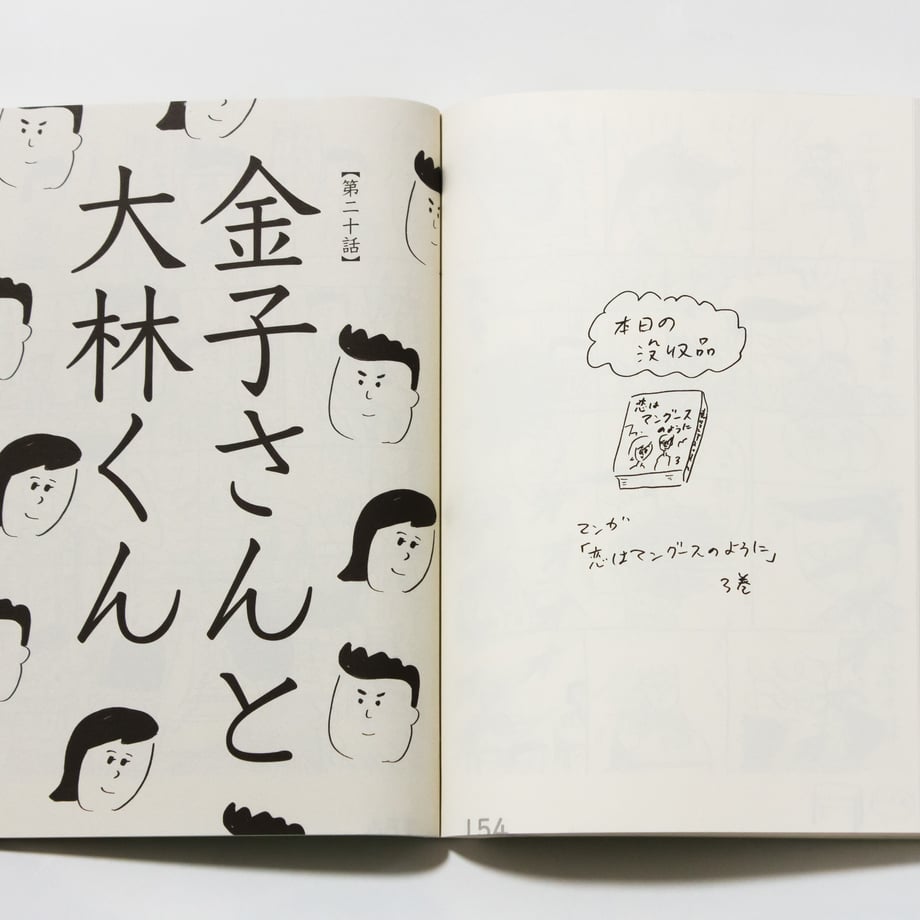 【第二十話】
金子さんと
大林くん
本日の
没収品
恋は
マングース
のように
3
マンガ
「恋はマングースのように」
3巻
154